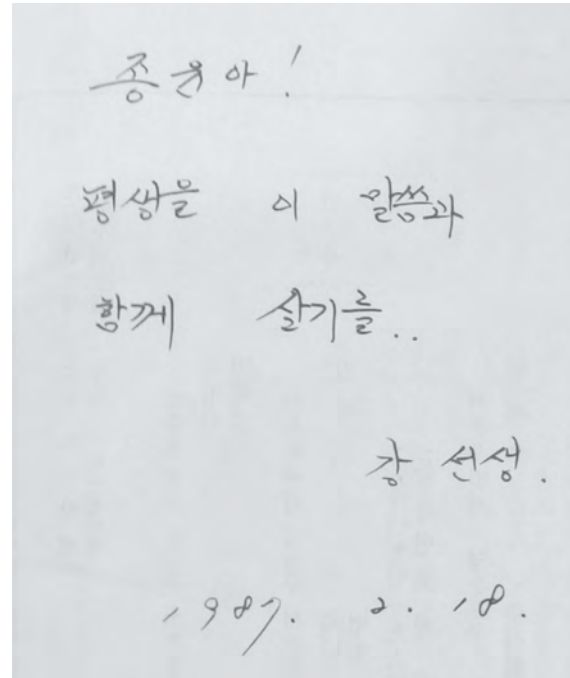 종윤아!
평생을 이 말씀과
함께 살기를..
강 선생.
1987. 2. 18.